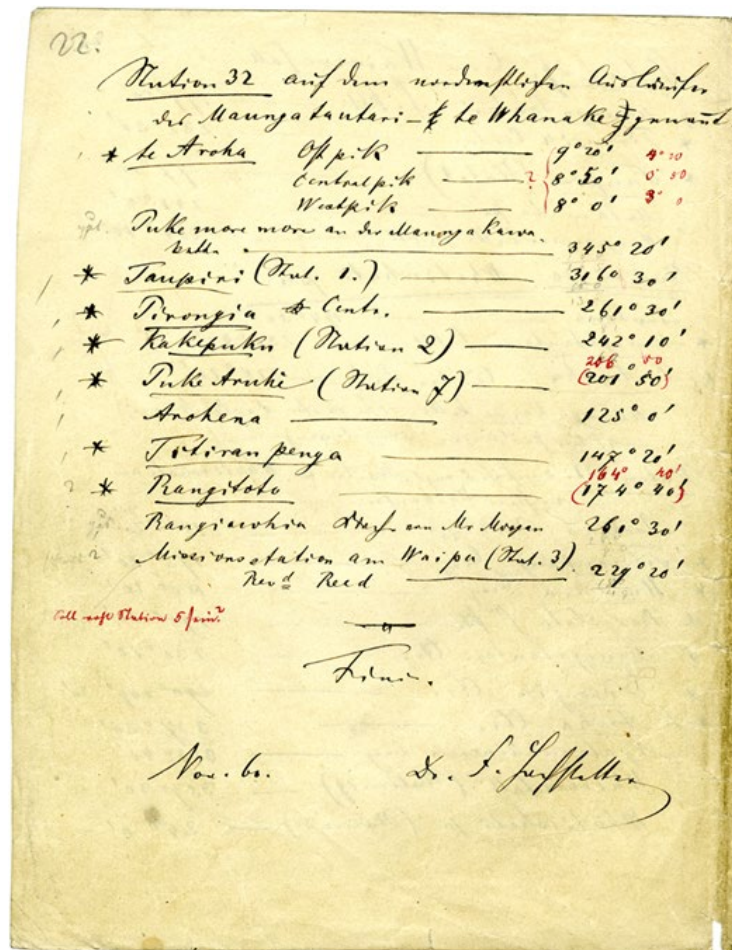 22.
Station 32 auf dem nordwestlichen Ausläufer
des Maungatautari – te Whanake genannt
* te Aroha Ostpik 9° 20' 4° 20
Centralpik ? 8° 50' 0° 50
Westpik 8° 0' 3° 0
Puke more more an der Maunga Kawa
345° 20'
* Taupiri (Stat. 1.) 316° 30'
* Pirongia Centr. 261° 30'
* Kakepuku (Station 2) 242° 10'
206 50
* Puke Aruhe (Station 7) (201° 50')
Arohena 125° 0'
* Titiraupenga 147° 20'
164° 40'
? * Rangitoto (174° 40')
Rangiawhia von Mr Morgan 261° 30'
? Missionsstation am Waipa (Stat. 3) 229° 20'
Revd Reed
Soll wohl Station 5 sein?
Finis.
Nov. 60. Dr. F. Hochstetter